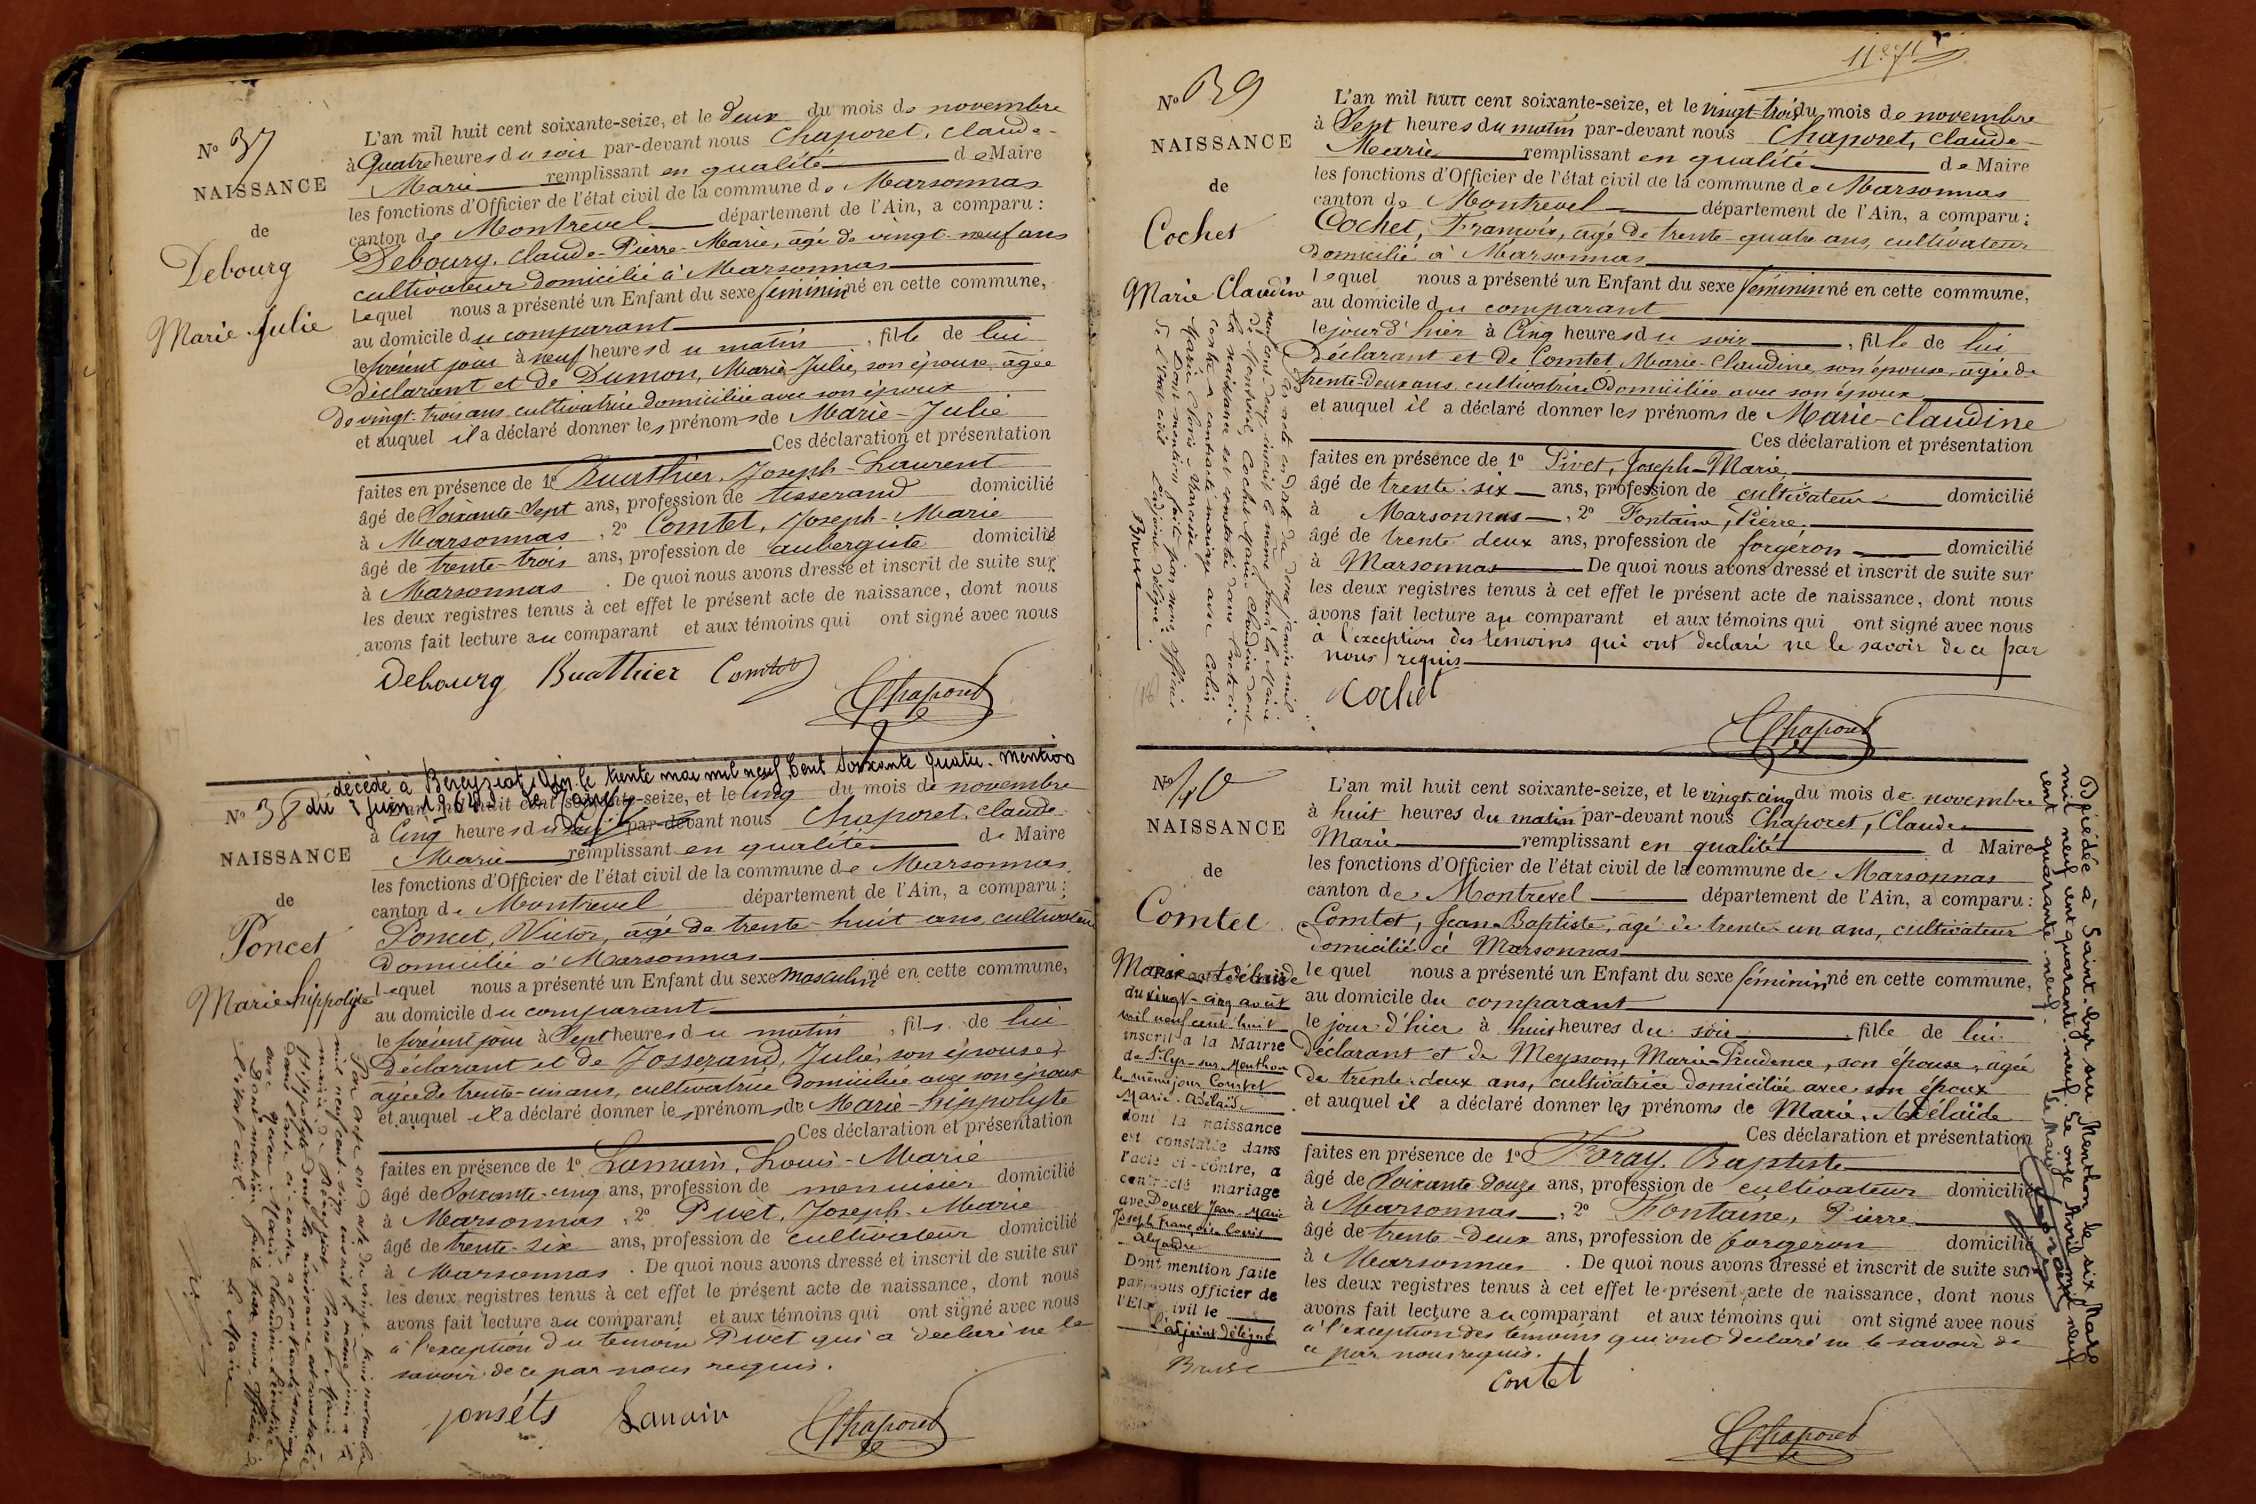 No 37
NAISSANCE
de
Debourg
Marie Julie
L'an mil huit cent soixante-seize, et le deux du mois de novembre
à Quatre heures du soir par-devant nous Chaporet, Claude-
Marie remplissant en qualité de Maire
les fonctions d'Officier de l'état civil de la commune de Marsonnas
canton de Montrevel département de l'Ain, a comparu :
Debourg, Claude-Pierre-Marie, âgé de vingt-neuf ans
cultivateur domicilié à Marsonnas
Lequel nous a présenté un Enfant du sexe féminin né en cette commune,
au domicile du comparant
le présent jour à neuf heures du matin, fille de lui
Déclarant et de Dumon, Marie-Julie, son épouse, âgée
De vingt-trois ans cultivatrice domiciliée avec son époux
et auquel il a déclaré donner les prénoms de Marie-Julie
Ces déclaration et présentation
faites en présence de 1o Buathier, Joseph-Laurent
âgé de Soixante-Sept ans, profession de tisserand domicilié
à Marsonnas, 2o Comtet, Joseph-Marie
âgé de trente-trois ans, profession de aubergiste domicilié
à Marsonnas. De quoi nous avons dressé et inscrit de suite sur
les deux registres tenus à cet effet le présent acte de naissance, dont nous
avons fait lecture au comparant et aux témoins qui ont signé avec nous
Debourg Buathier Comtet
Chaporet
décédé à Béréziat, Ain le trente mai mil neuf cent soixante quatre. Mention
du 3 juin 1964
No 38
NAISSANCE
de
Poncet
Marie hippolyte
L'an mil huit cent soixante-seize, et le Cinq du mois de novembre
à Cinq heures du soir par-devant nous Chaporet, Claude-
Marie remplissant en qualité de Maire
les fonctions d'Officier de l'état civil de la commune de Marsonnas
canton de Montrevel département de l'Ain, a comparu :
Poncet, Victor, âgé de trente-huit ans, cultivateur
Domicilié à Marsonnas
Lequel nous a présenté un Enfant du sexe masculin né en cette commune,
au domicile du comparant
le présent jour à Sept heures du matin, fils de lui
Déclarant et de Josserand, Julie, son épouse,
âgée de trente-un ans, cultivatrice domiciliée avec son époux
et auquel il a déclaré donner les prénoms de Marie-hippolyte
Ces déclaration et présentation
faites en présence de 1o Lamain, Louis-Marie
âgé de Soixante-cinq ans, profession de menuisier domicilié
à Marsonnas, 2o Pivet, Joseph-Marie
âgé de trente-six ans, profession de cultivateur domicilié
à Marsonnas. De quoi nous avons dressé et inscrit de suite sur
les deux registres tenus à cet effet le présent acte de naissance, dont nous
avons fait lecture au comparant et aux témoins qui ont signé avec nous
à l'exception du témoin Pivet qui a déclaré ne le
savoir de ce par nous requis.
ponséts Lamain
Chaporet
Par acte en date du vingt-trois novembre
mil neuf cent six inscrit le même jour à la
mairie de Béréziat Poncet Marie
Hippolyte dont la naissance est constatée
dans l'acte ci-contre a contracté mariage
avec Marie Claudine
Dont mention faite par nous officier de
l'état civil. Le Maire
No 39
NAISSANCE
de
Cochet
Marie Claudine
L'an mil huit cent soixante-seize, et le vingt-trois du mois de novembre
à Sept heures du matin par-devant nous Chaporet, Claude-
Marie remplissant en qualité de Maire
les fonctions d'Officier de l'état civil de la commune de Marsonnas
canton de Montrevel département de l'Ain, a comparu :
Cochet, François, âgé de trente-quatre ans, cultivateur
domicilié à Marsonnas
Lequel nous a présenté un Enfant du sexe féminin né en cette commune,
au domicile du comparant
le jour d'hier à Cinq heures du soir, fille de lui
Déclarant et de Comtet, Marie-Claudine, son épouse, âgée de
trente-deux ans, cultivatrice Domiciliée avec son époux
et auquel il a déclaré donner les prénoms de Marie-Claudine
Ces déclaration et présentation
faites en présence de 1o Pivet, Joseph-Marie
âgé de trente-six ans, profession de cultivateur domicilié
à Marsonnas, 2o Fontaine, Pierre
âgé de trente deux ans, profession de forgeron domicilié
à Marsonnas De quoi nous avons dressé et inscrit de suite sur
les deux registres tenus à cet effet le présent acte de naissance, dont nous
avons fait lecture au comparant et aux témoins qui ont signé avec nous
à l'exception des témoins qui ont déclaré ne le savoir de ce par
nous requis
Cochet
Chaporet
Par acte en date du douze janvier mil
neuf cent deux, inscrit le même jour à la Mairie
de Montrevel, Cochet Marie Claudine dont
la naissance est constatée dans l'acte ci-
contre a contracté mariage avec
Marie
Dont mention faite par nous officier
de l'état civil L'adjoint délégué
Brusse
No 40
NAISSANCE
de
Comtet
Marie Adélaïde
L'an mil huit cent soixante-seize, et le vingt-cinq du mois de novembre
à huit heures du matin par-devant nous Chaporet, Claude
Marie remplissant en qualité d Maire
les fonctions d'Officier de l'état civil de la commune de Marsonnas
canton de Montrevel département de l'Ain, a comparu :
Comtet, Jean-Baptiste, âgé de trente-un ans, cultivateur
domicilié à Marsonnas
le quel nous a présenté un Enfant du sexe féminin né en cette commune,
au domicile du comparant
le jour d'hier à huit heures du soir, fille de lui
Déclarant et de Meysson, Marie-Prudence, son épouse, âgée
de trente-deux ans, cultivatrice domiciliée avec son époux
et auquel il a déclaré donner les prénoms de Marie-Adélaïde
Ces déclaration et présentation
faites en présence de 1o Foray, Baptiste
âgé de Soixante-douze ans, profession de cultivateur domicilié
à Marsonnas, 2o Fontaine, Pierre
âgé de trente-deux ans, profession de forgeron domicilié
à Marsonnas. De quoi nous avons dressé et inscrit de suite sur
les deux registres tenus à cet effet le présent acte de naissance, dont nous
avons fait lecture au comparant et aux témoins qui ont signé avec nous
à l'exception des témoins qui ont déclaré ne le savoir de
ce par nous requis.
Contet
Chaporet
Par acte
du vingt-cinq août
mil neuf cent huit
inscrit à la Mairie
de St Cyr-sur-Menthon
le même jour Comtet
Marie-Adélaïde
dont la naissance
est constatée dans
l'acte ci-contre, a
contracté mariage
avec Doucet Jean Marie
Joseph François Louis
Alexandre
Dont mention faite
par nous officier de
l'Etat civil le
L'adjoint délégué
Brusse
Décédée à Saint-Cyr sur Menthon le six Mars
mil neuf cent quarante neuf. Le onze Avril mil neuf
cent quarante-neuf.
Le Maire